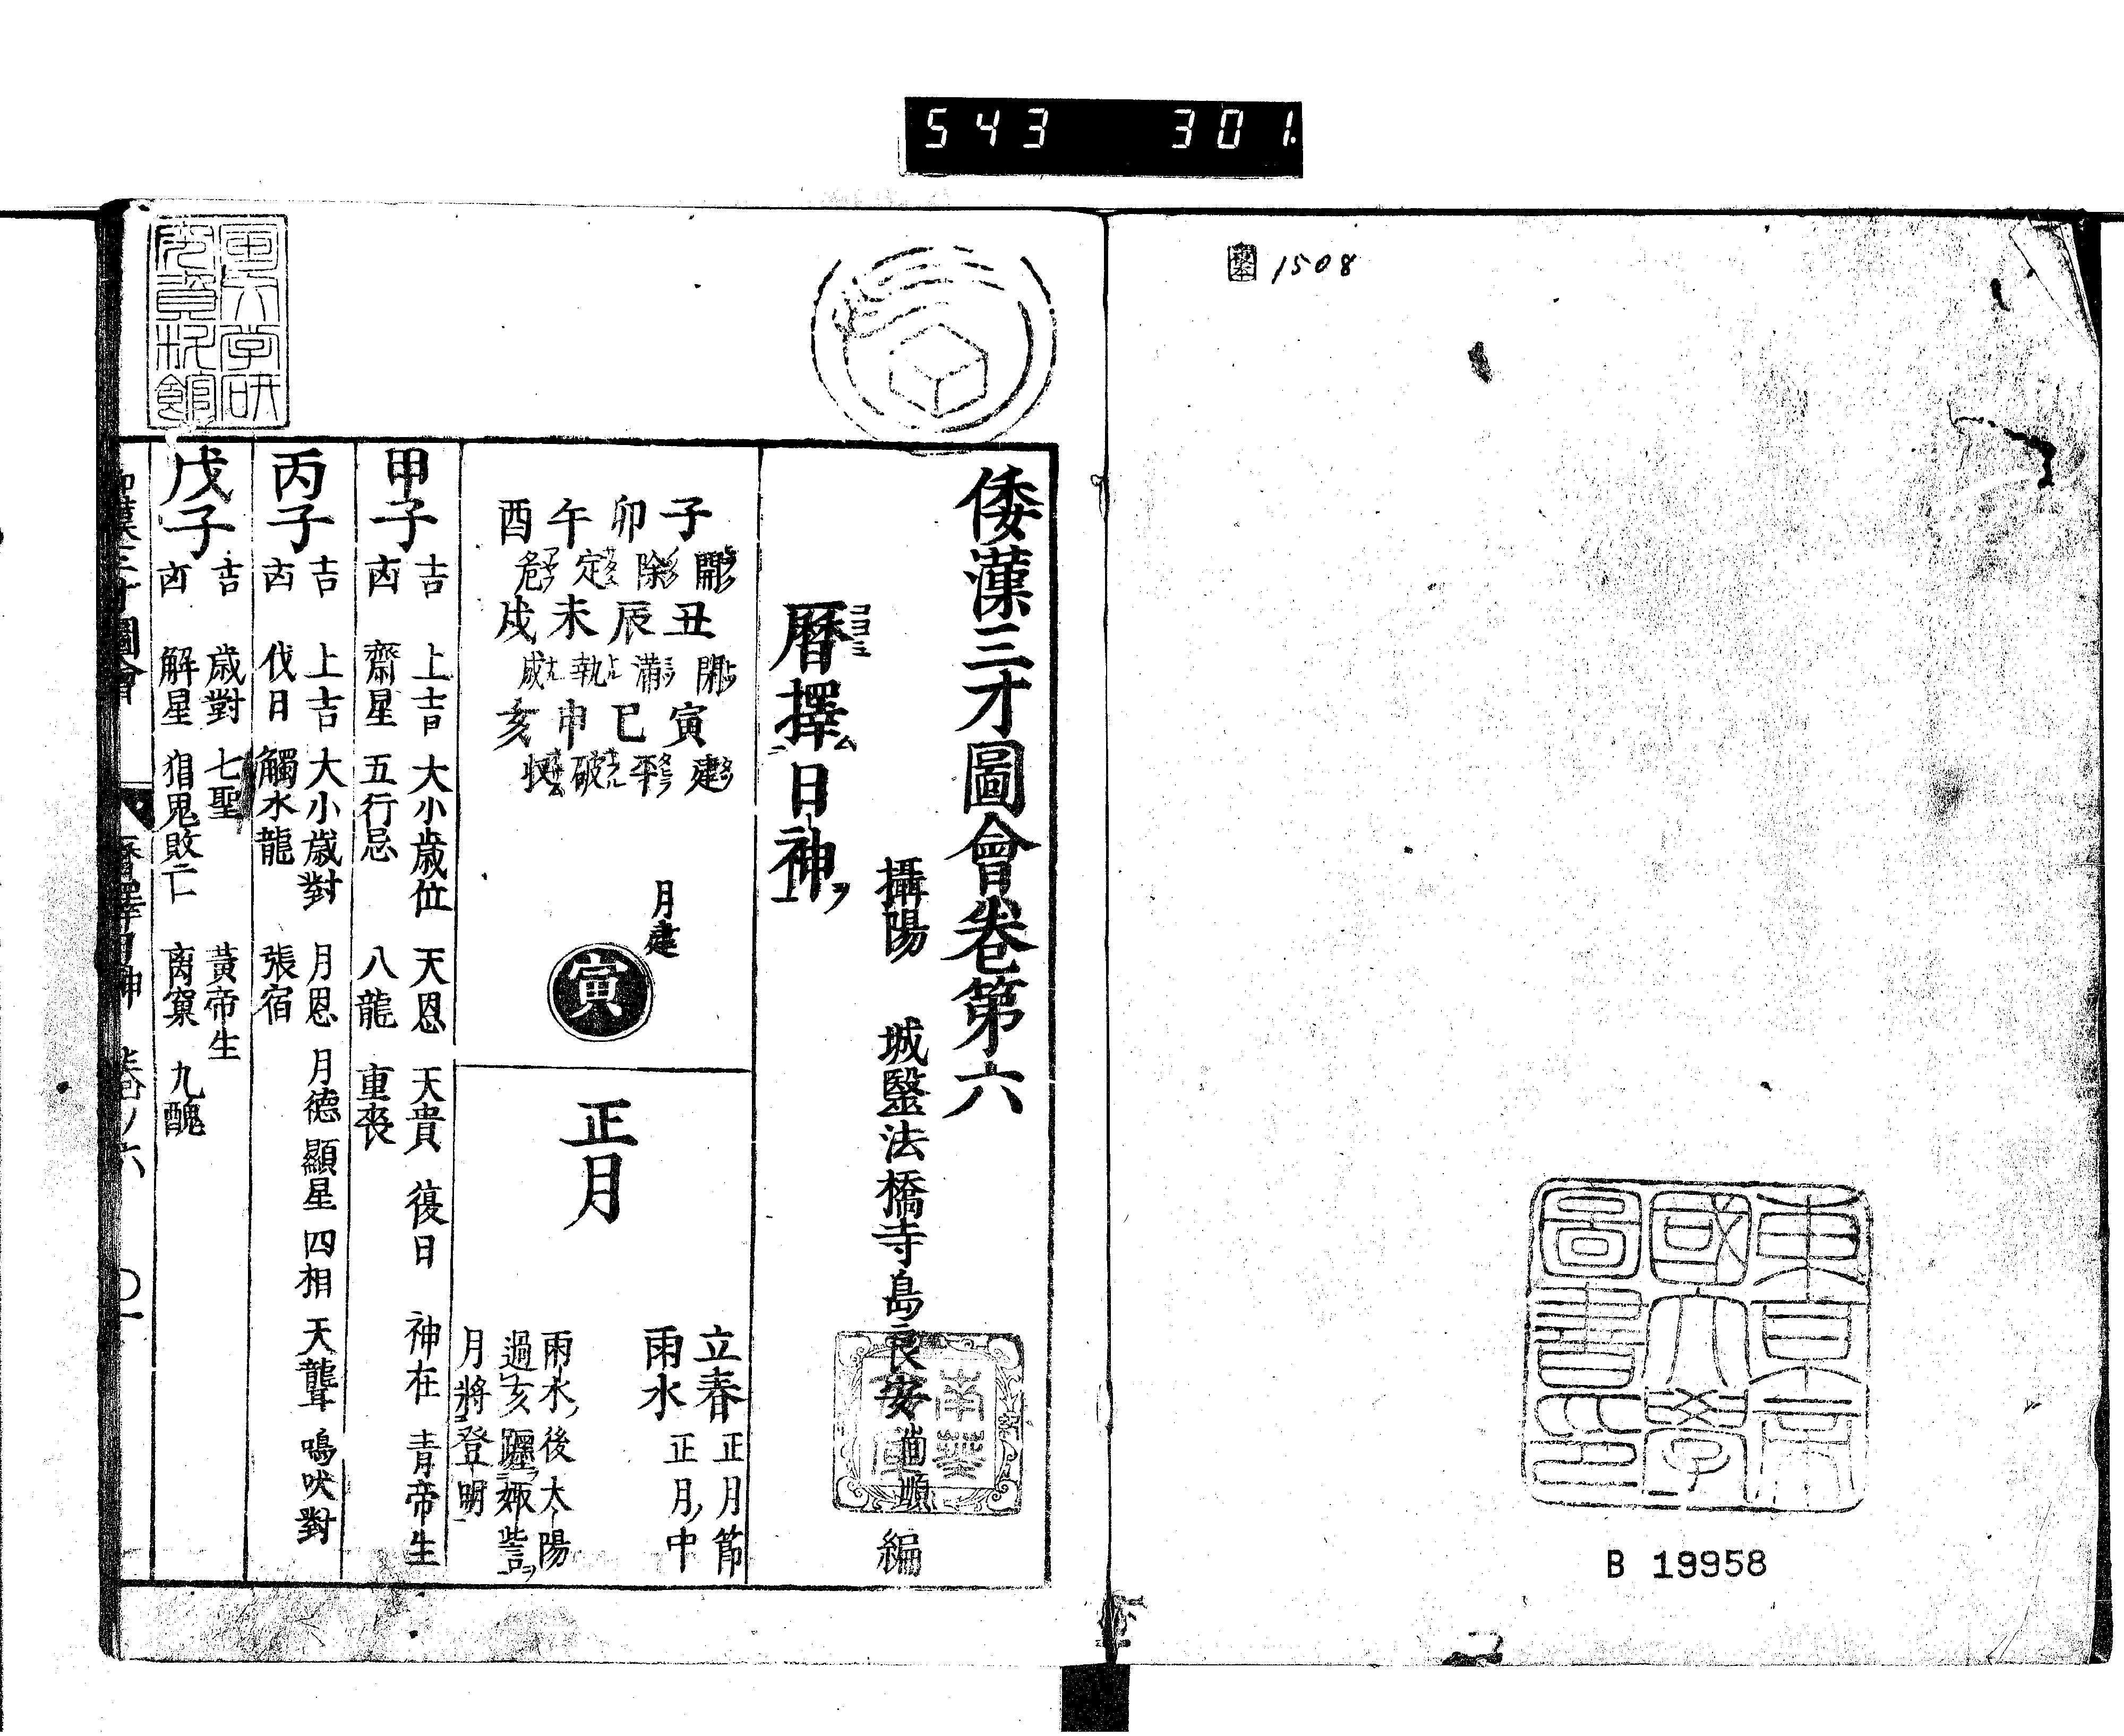 543 301
1508
東京帝
國大學
圖書印
B 19958
倭漢三才圖會卷第六
攝陽 城醫法橋寺島良安尚順 編
暦擇日神
子 開 丑 閉 寅 建
卯 除 辰 滿 巳 平
午 定 未 執 申 破
酉 危 戌 成 亥 收
月建
寅
正月
立春 正月節
雨水 正月中
雨水後太陽
過亥躔娵訾
月將登明
甲子
吉 上吉日 大小歲位 天恩 天貴 復日 神在 青帝生
凶 齋星 五行忌 八龍 重喪
丙子
吉 上吉 大小歲對 月恩 月德 顯星 四相 天聾 鳴吠對
凶 伐日 觸水龍 張宿
戊子
吉 歲對 七聖 黃帝生
凶 解星 猖鬼敗亡 离窠 九醜
和漢三才圖會 曆擇日神 卷ノ六 〇一